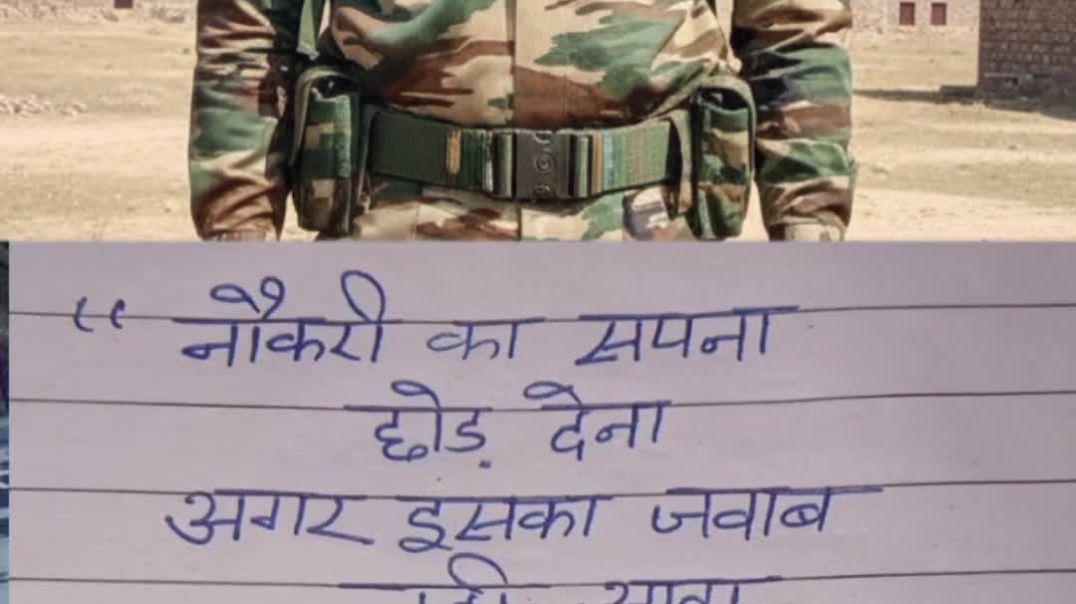 “ नौकरी का सपना
छोड़ देना
अगर इसका जवाब